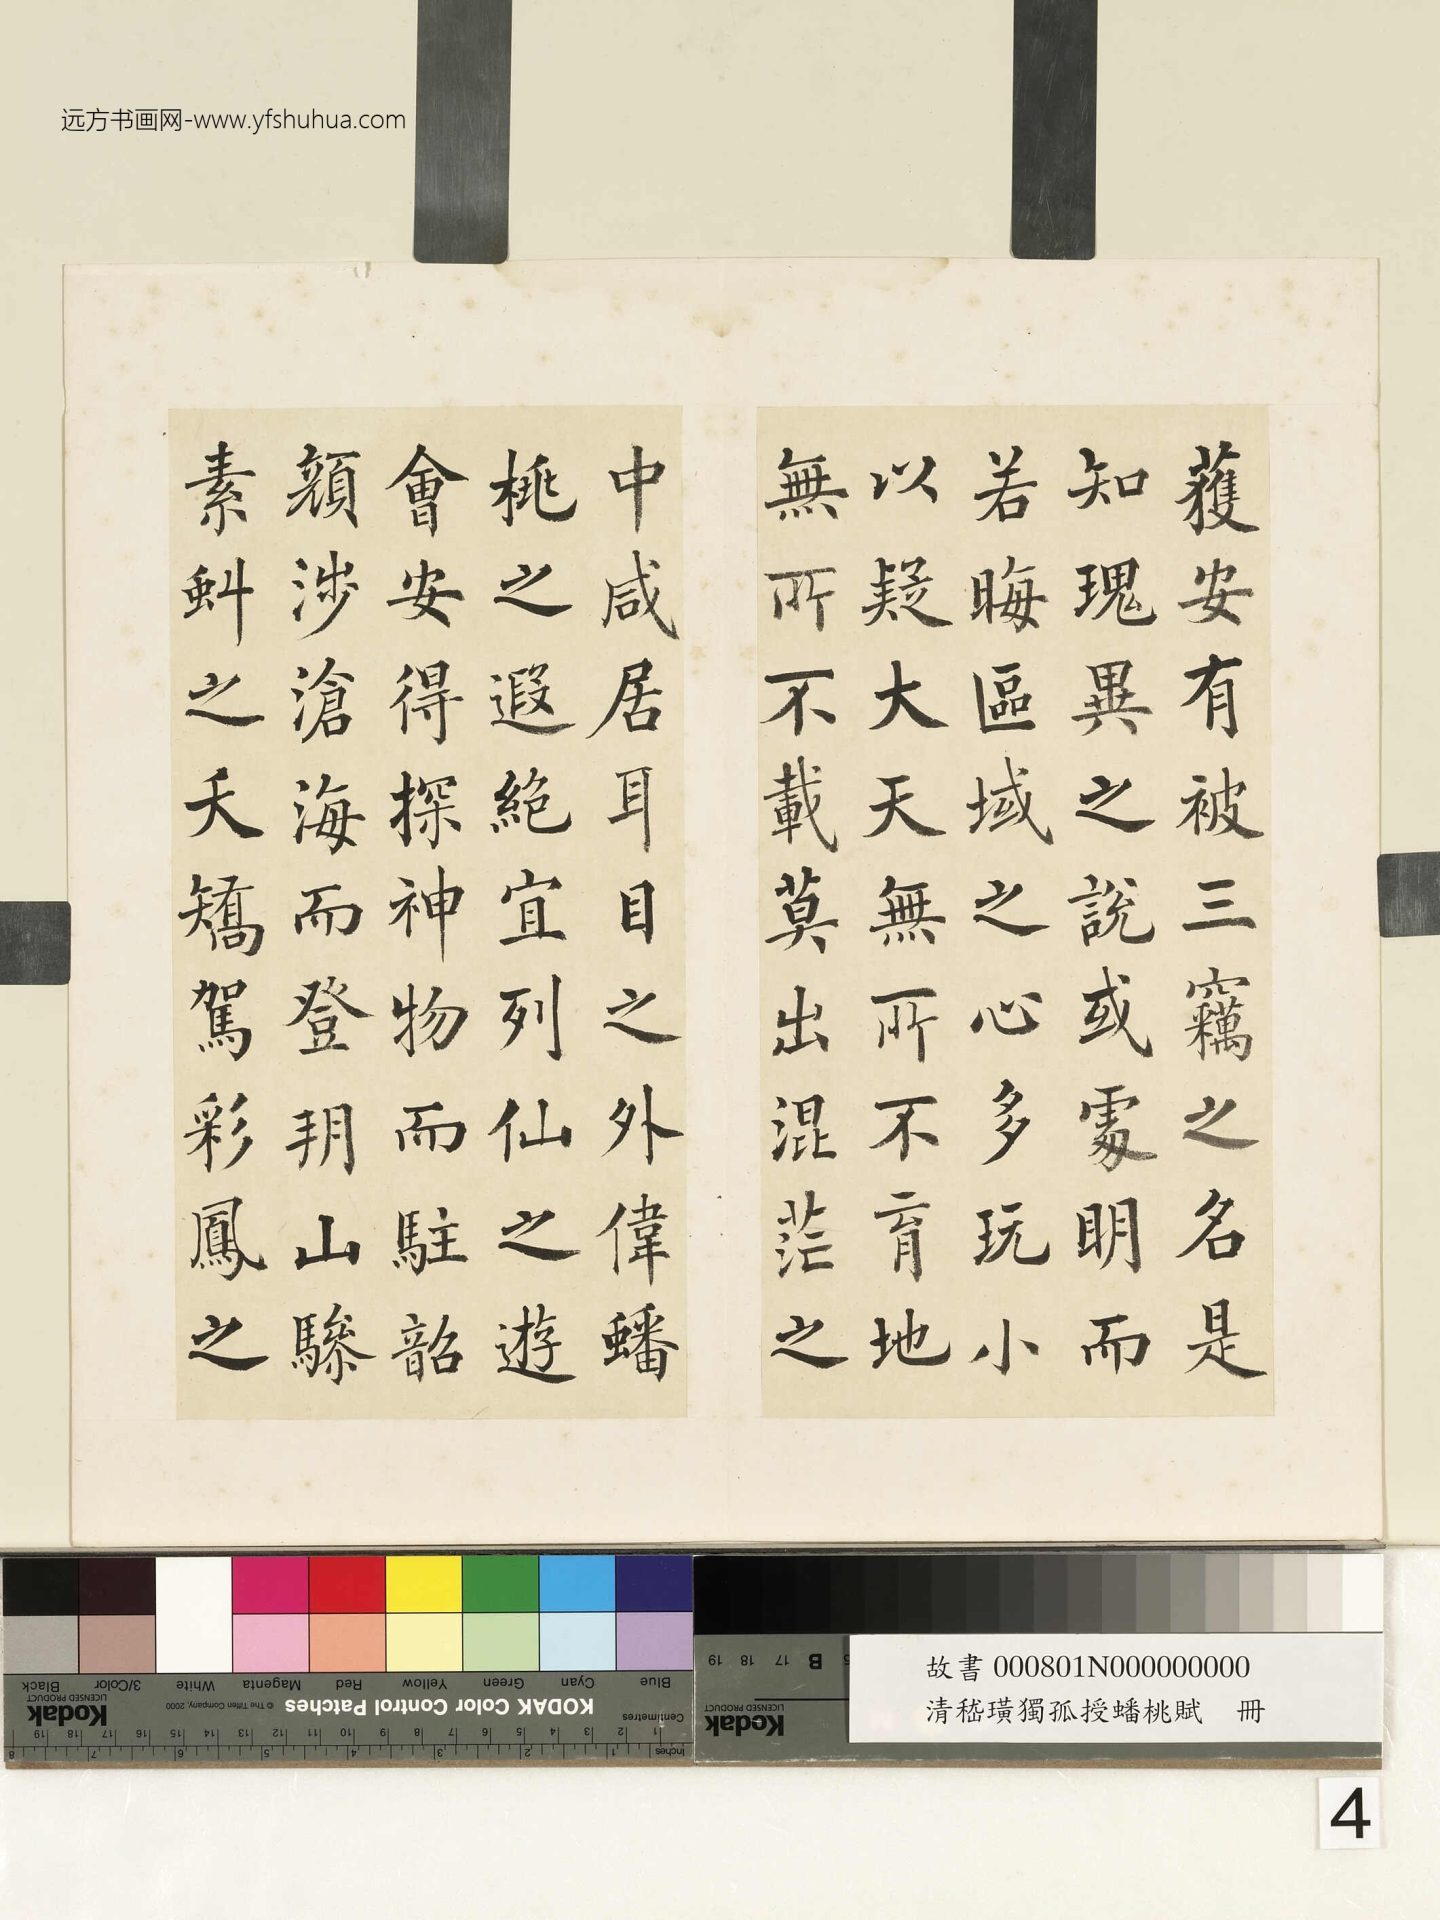 远方书画网-www.yfshuhua.com
蒦安有被三竊之名是
知瑰異之說或處明而
若晦區域之心多玩小
以疑大天無所不育地
無所不載莫出混茫之
中咸居耳目之外偉蟠
桃之遐絶宜列仙之遊
會安得探神物而駐韶
顏涉滄海而登玥山驂
素虯之夭矯駕彩鳳之
Black
3/Color
White
Magenta
Red
Yellow
Green
Cyan
Blue
Kodak
LICENSED PRODUCT
KODAK Color Control Patches
© The Tiffen Company, 2000
Centimetres
Inches
B
Kodak
LICENSED PRODUCT
故書 000801N000000000
清嵇璜獨孤授蟠桃賦 冊
4